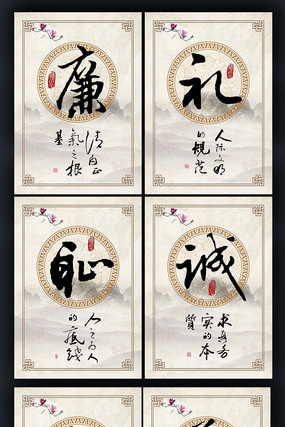 廉
清白正
氣之根
基
礼
人际文明
的規范
耻
人之为人
的底线
诚
求真务
实的本
質